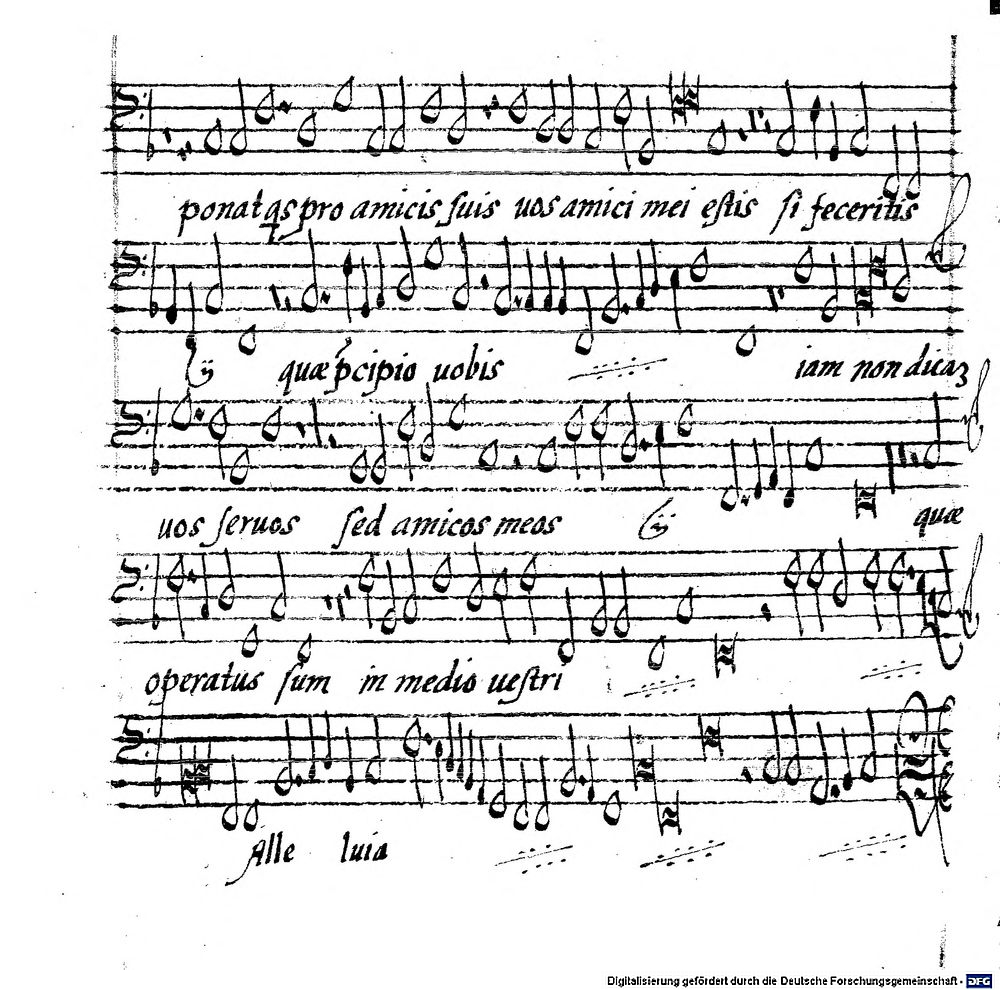 ponat qs pro amicis suis uos amici mei estis si feceritis
ij quæ pcipio uobis iam non dicaʒ
uos seruos sed amicos meos ij quæ
operatus sum in medio uestri
Alle luia
Digitalisierung gefördert durch die Deutsche Forschungsgemeinschaft - DFG